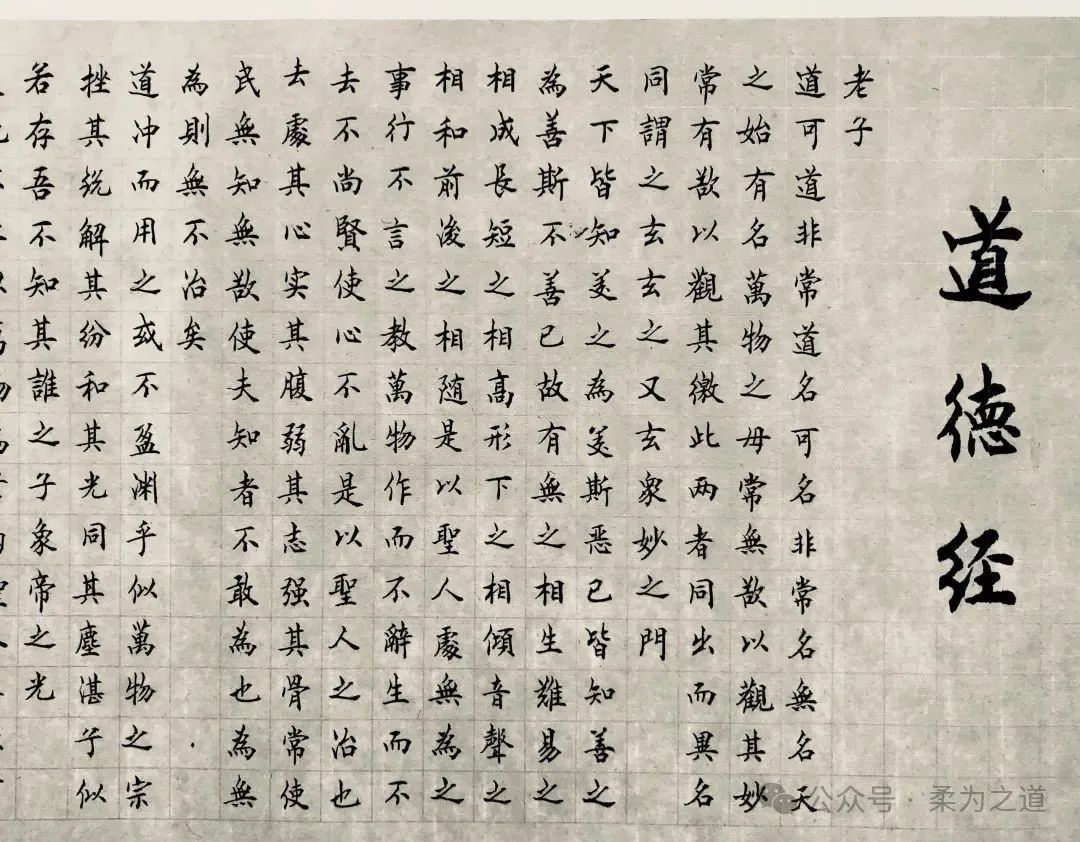 道德经
老子
道可道非常道名可名非常名無名天
之始有名萬物之母常無欲以觀其妙
常有欲以觀其繳此两者同出而異名
同謂之玄玄之又玄衆妙之門
天下皆知美之為美斯恶已皆知善之
為善斯不善已故有無之相生難易之
相成長短之相高形下之相傾音聲之
相和前後之相随是以聖人處無為之
事行不言之教萬物作而不辭生而不
去不尚賢使心不亂是以聖人之治也
去處其心实其腹弱其志强其骨常使
民無知無欲使夫知者不敢為也為無
為則無不治矣
道冲而用之或不盈渊乎似萬物之宗
挫其锐解其纷和其光同其塵湛兮似
若存吾不知其誰之子象帝之光
公众号·柔为之道